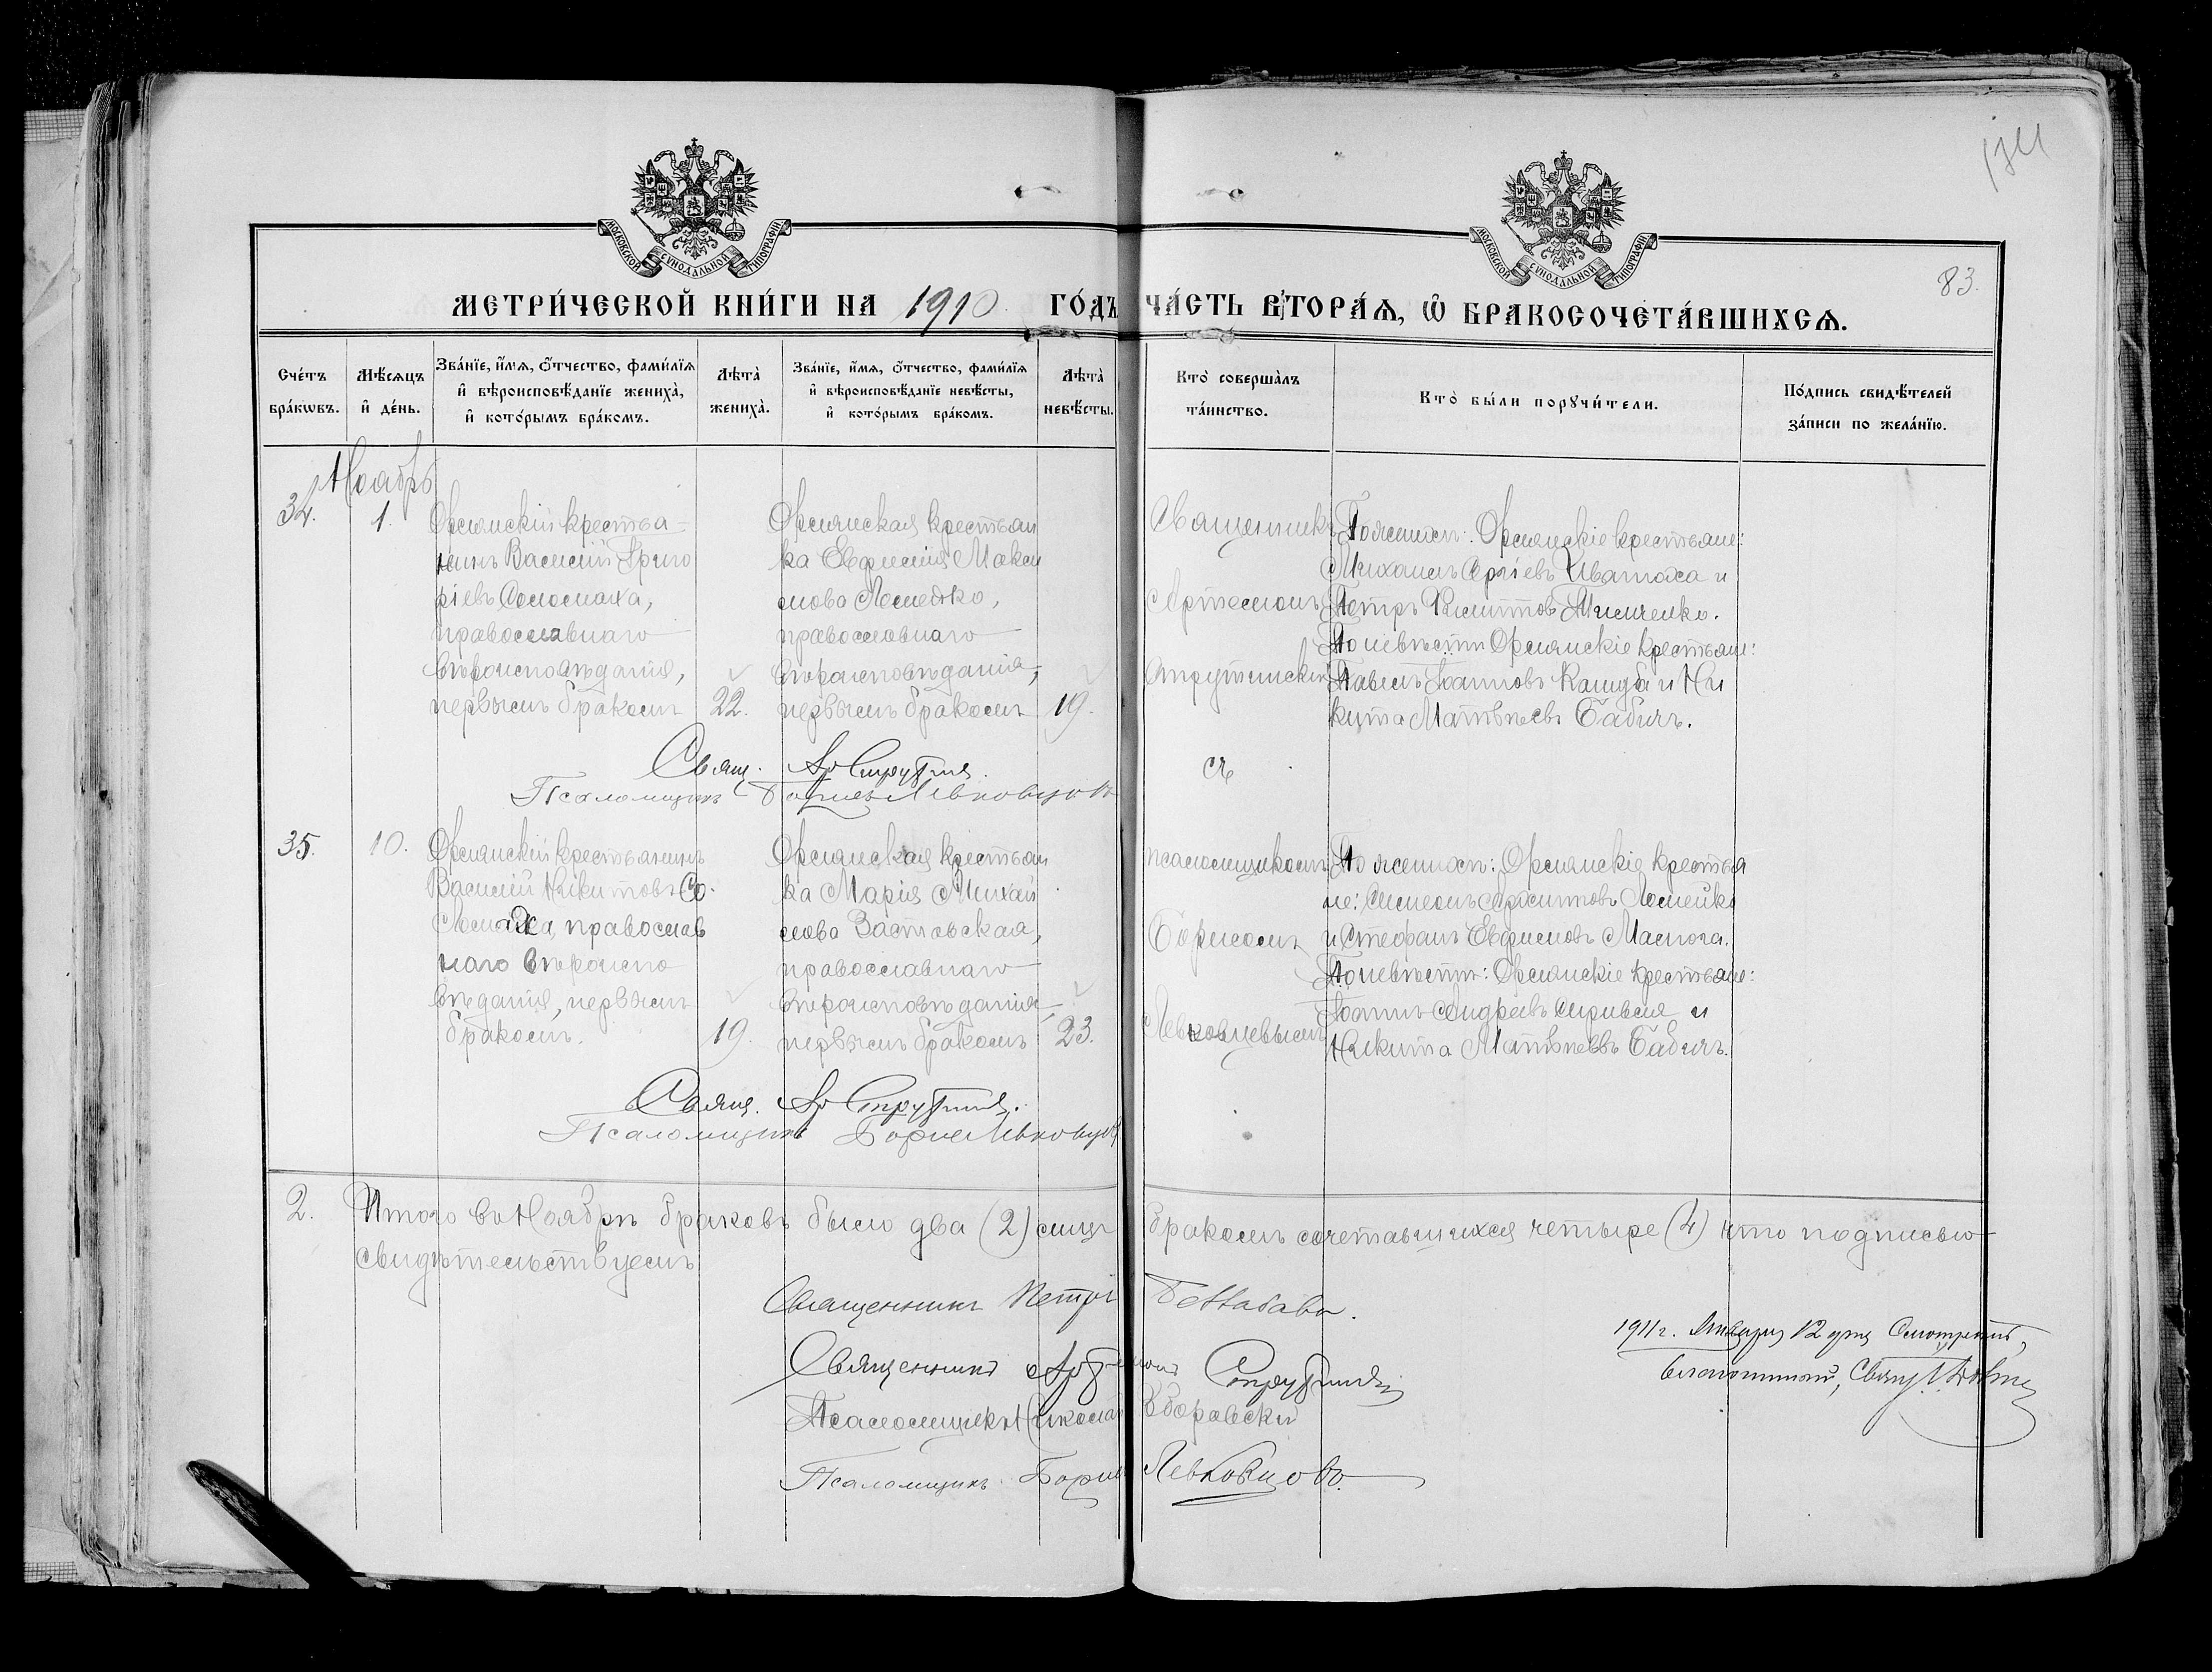 МОСКОВСКОЙ СѴНОДАЛЬНОЙ ТИПОГРАФІИ
МОСКОВСКОЙ СѴНОДАЛЬНОЙ ТИПОГРАФІИ
83.
МЕТРИ́ЧЕСКОЙ КНИ́ГИ НА 1910 ГО́ДЪ ЧА́СТЬ ВТОРА́Ѧ, Ѡ҆ БРАКОСОЧЕТА́ВШИХСѦ.
Сче́тъ бра́кѡвъ.
Мѣ́сѧцъ и҆ де́нь.
Зва́нїе, и҆́мѧ, ѻ҆́тчество, фами́лїѧ и҆ вѣроисповѣ́данїе жениха̀, и҆ кото́рымъ бра́комъ.
Лѣта̀ жениха̀.
Зва́нїе, и҆́мѧ, ѻ҆́тчество, фами́лїѧ и҆ вѣроисповѣ́данїе невѣ́сты, и҆ кото́рымъ бра́комъ.
Лѣта̀ невѣ́сты.
Кто̀ соверша́лъ та́инство.
Кто̀ бы́ли порꙋчи́тели.
По́дпись свидѣ́телей за́писи по жела́нїю.
Ноябрь
34.
1.
Орлянскій крестья-
нинъ Василій Григо
ріевъ Соломаха,
православнаго
вѣроисповѣданія,
первымъ бракомъ
22.
Орлянская крестьян
ка Евфимія Макси
мова
православнаго
вѣроисповѣданія,
первымъ бракомъ
19.
Священникъ
Артемонъ
Струтинскій
съ
По женихѣ: Орлянскіе крестьяне:
Михаилъ Сергіевъ и
Петръ Мищенко.
По невѣстѣ Орлянскіе крестьяне:
Павелъ Іоанновъ Кашуба и Ни
кита Матвѣевъ Бабичъ.
Свящ. Ар Струтин
Псаломщикъ Борисъ Левковцовъ
35.
10.
Орлянскій крестьянинъ
Василій Никитовъ Со-
ломаха, православ
наго вѣроиспо
вѣданія, первымъ
бракомъ.
19.
Орлянская крестьян
ка Марія Михай
лова Заставская,
православнаго
вѣроисповѣданія,
первымъ бракомъ
23.
псаломщикомъ
Борисомъ
Левковцевымъ
По женихѣ: Орлянскіе крестья
не: Симеонъ
и Стефанъ Евфимовъ
По невѣстѣ: Орлянскіе крестьяне:
Іоаннъ Андреевъ и
Никита Матвѣевъ Бабичъ.
Свящ. Ар Струтин
Псаломщикъ Борисъ Левковцов
2.
Итого въ Ноябрѣ браковъ было два (2) лицъ бракомъ сочетавшихся четыре (4) что подписью
свидѣтельствуемъ
Священникъ Петръ
Священникъ Артемонъ Струтинскій
Псаломщикъ Николай Зборовскій
Псаломщикъ Борисъ Левковцовъ.
1911 г. Января 12 дня Смотрѣлъ,
благочинный, Свящ.